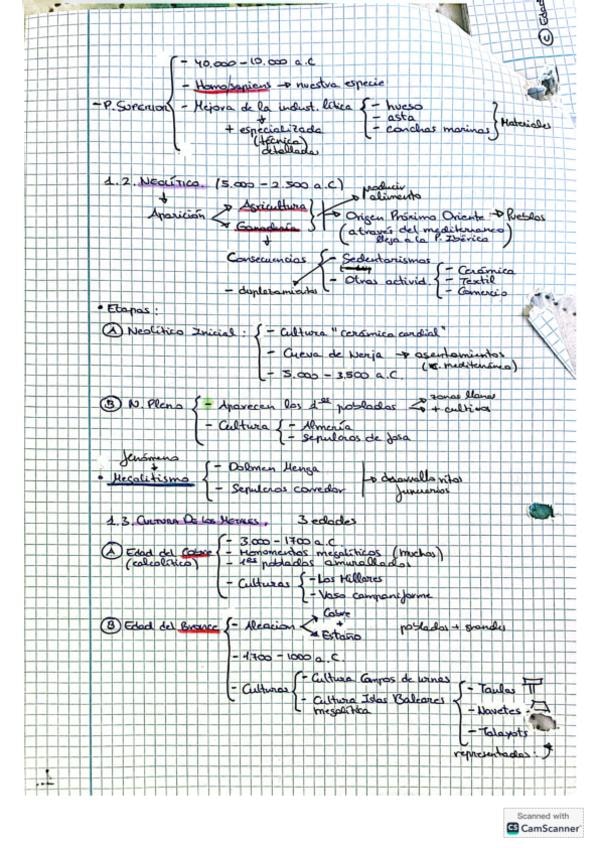 © Edad
- 40.000 - 10.000 a.C
- Homosapiens → nuestra especie
- P. Superior
- Mejora de la indust. lítica
- hueso
- asta
- conchas marinas
Materiales
+ especializada
(técnica)
detallada
1.2. NEOLÍTICO. (5.000 - 2.500 a.C)
producir
alimento
Aparición
Agricultura
Ganadería
Origen Próximo Oriente → Pueblos
(através del mediterraneo
llega a la P. Ibérica)
Consecuencias
- Sedentarismos
- Otras activid.
- Cerámica
- Textil
- Comercio
- desplazamientos
• Etapas:
Ⓐ Neolítico Inicial:
- Cultura "cerámica cardial"
- Cueva de Nerja → asentamientos
(C. mediterráneo)
- 5.000 - 3.500 a.C.
Ⓑ N. Pleno
- Aparecen los 1ᵒˢ poblados
zonas llanas
+ cultivos
- Cultura
- Almería
- Sepulcros de fosa
fenómeno
• Megalitismo
- Dolmen Menga
- Sepulcros corredor
desarrolla ritos
funerarios
1.3. CULTURA DE LOS METALES.
3 edades
Ⓐ Edad del Cobre
(calcolítico)
- 3.000 - 1700 a.C.
- Monomentos megalíticos (muchos)
- 1ᵒˢ poblados amurallados
- Culturas
- Los Millares
- Vaso campaniforme
Ⓑ Edad del Bronce
- Aleacion
Cobre
+
Estaño
poblados + grandes
- 1.700 - 1000 a.C.
- Culturas
- Cultura Campos de urnas
- Cultura Islas Baleares
megalítica
- Taulas
- Navetes
- Talayots
representadas:
Scanned with
CS CamScanner